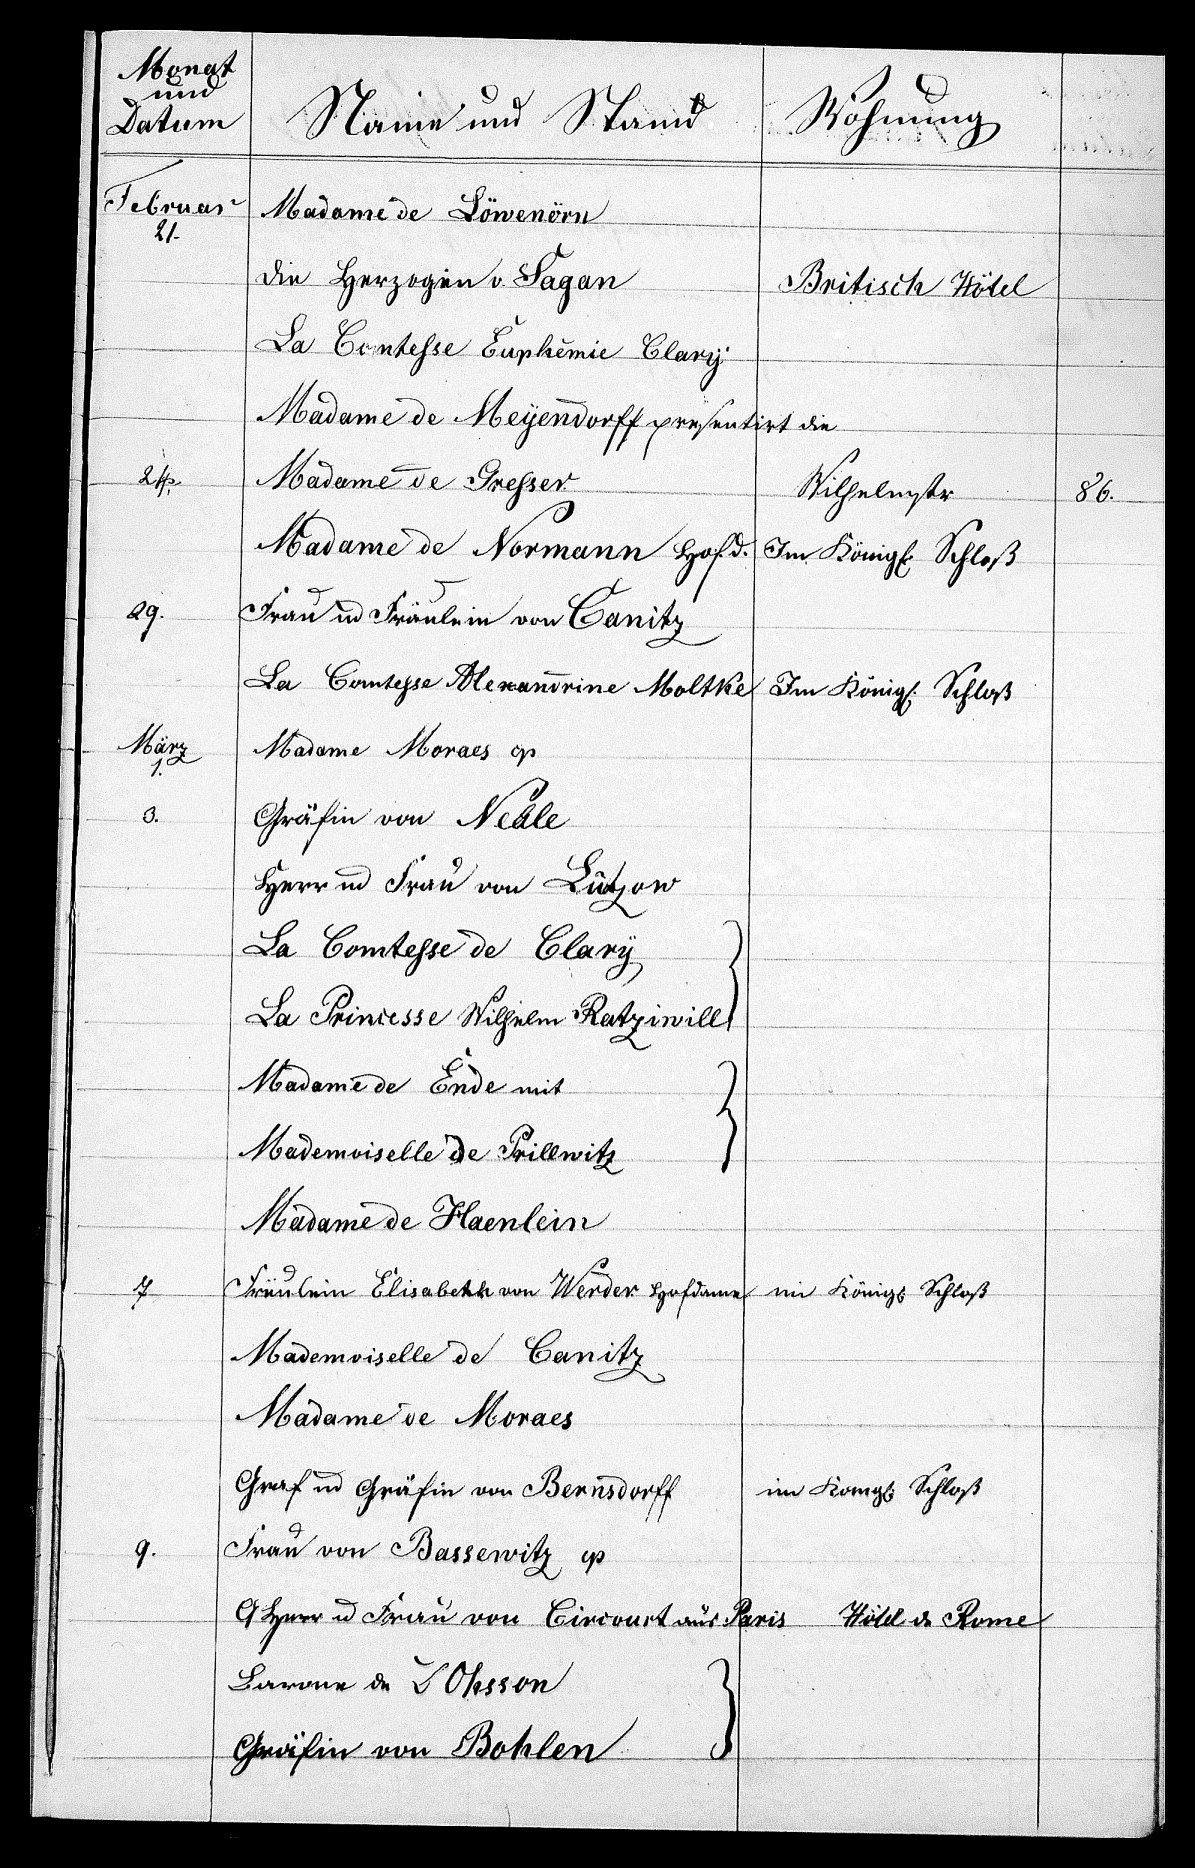 Monat und Datum Name und Stand Wohnung
Februar 21. Madame de Löwenörn
die Herzogin v. Sagan Britisch Hôtel
La Comtesse Euphémie Clarÿ
Madame de Meÿendorff präsentirt die
24. Madame de Gresser Wilhelmstr 86.
Madame de Normann Hofd. Im Königl. Schloß
29. Frau ud Fräulein von Canitz
La Comtesse Alexandrine Moltke Im Königl. Schloß
März 1. Madame Moraes
3. Gräfin von Neale
Herr ud Frau von Lützow
La Comtesse de Clarÿ
La Princesse Wilhelm Ratziwill
Madame de Ende mit
Mademoiselle de Prillwitz
Madame de Haenlein
7 Fräulein Elisabeth von Werder Hofdame im Königl Schloß
Mademoiselle de Canitz
Madame de Moraes
Graf ud Gräfin von Bernsdorff im Königl. Schloß
9. Frau von Bassewitz
Herr ud Frau von Circourt aus Paris Hôtel de Rome
Barone de D'Ohsson
Gräfin von Bohlen